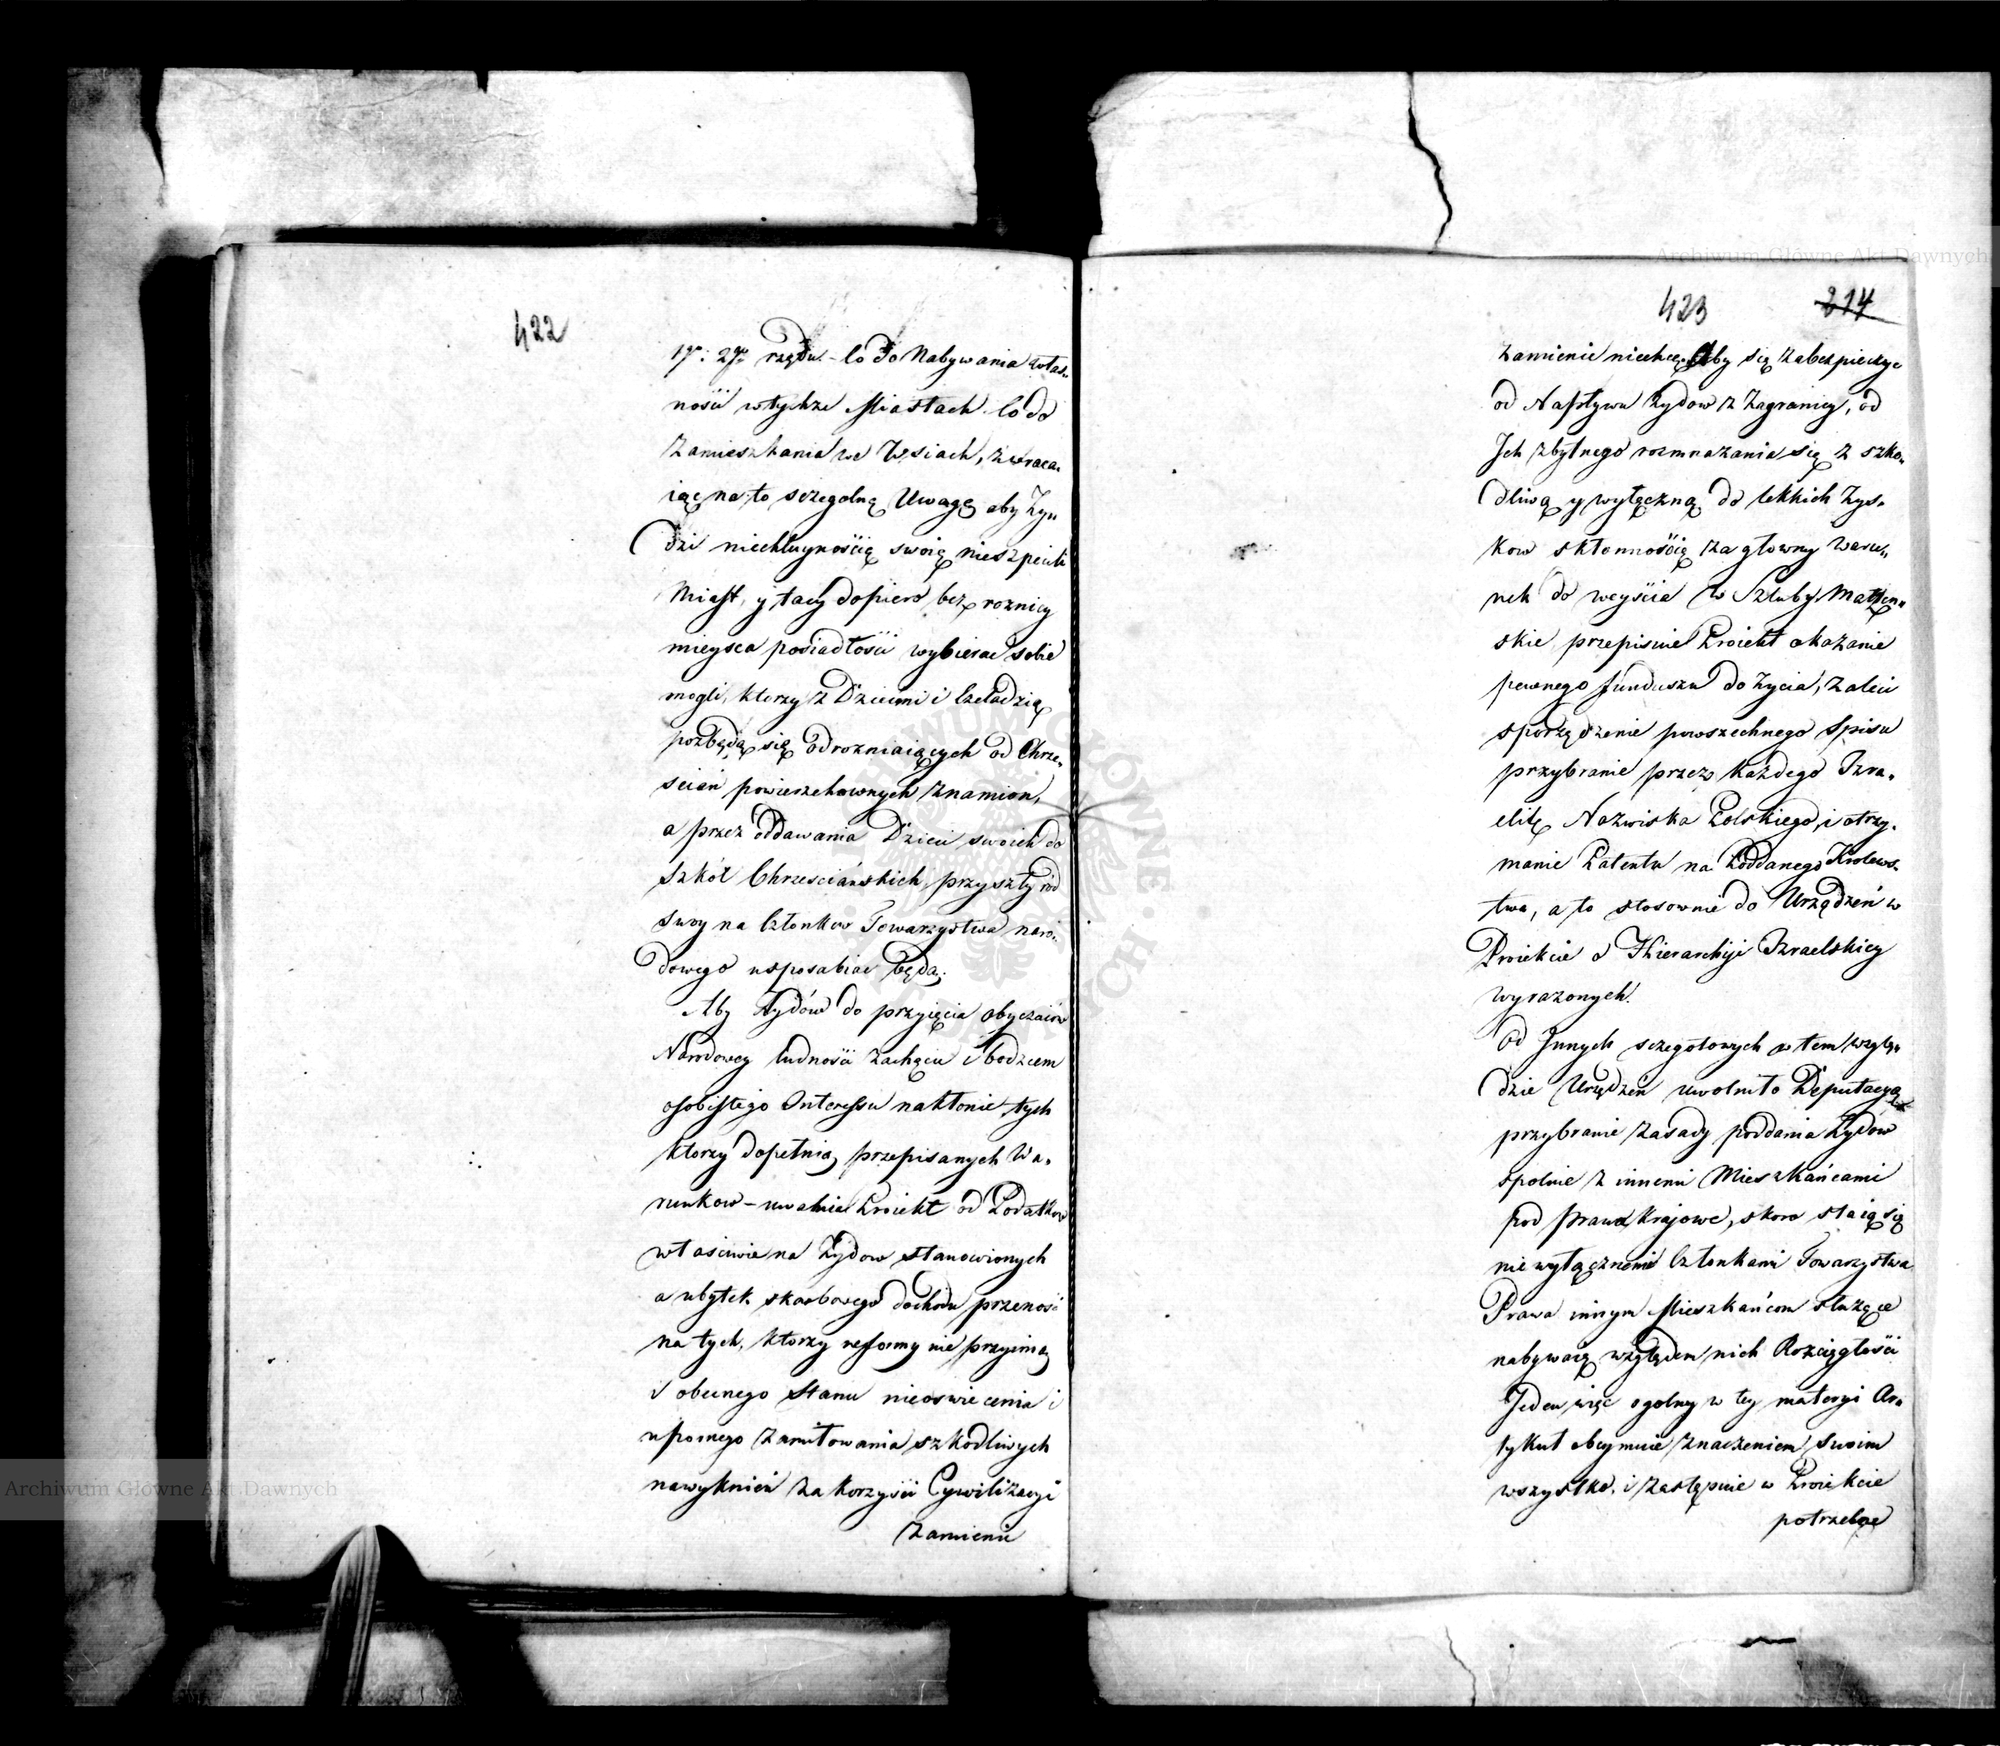 422
1go: 2go rzędu – co do Nabywania własno„
ności w tychże Miastach co do
zamieszkania we Wsiach, zwraca„
iąc na to szczegolną Uwagę aby Ży„
dzi niechluynością swoią nieszpecili
Miast, y tacy dopiero bez roznicy
mieysca posiadłości wybierac sobie
mogli, ktorzy z Dziecmi i Czeladzią
pozbędą się odrozniaiących od Chrze„
scian powierzchownych znamion,
a przez oddawania Dzieci swoich do
Szkół Chrzesciańskich przyszły ród
swoy na Członkow Towarzystwa naro„
dowego usposabiac będą.
Aby Żydów do przyięcia obyczaiów
Narodowey ludności zachęcić i bodzcem
osobistego Interessu nakłonie, tych
ktorzy dopełnią przepisanych Wa„
runkow – uwalnia Proiekt od Podatkow
własciwie na Żydow stanowionych
a ubytek skarbowego dochodu przenosi
na tych, ktorzy reformy nie przyimą
i obecnego Stanu nieoswiecenia i
upornego zamiłowania szkodliwych
nawyknień za korzysci Cywilizacyi
zamienić
Archiwum Główne Akt Dawnych
Archiwum Główne Akt Dawnych
423 214
zamienić niechcą. Aby się zabezpieczyc
od Napływu Żydow z Zagranicy, od
Ich zbytnego rozmnazania się z szko„
dliwą y wyłączną do lekkich Zys„
kow skłonnością za głowny Waru„
nek do weyścia w Szluby Małżeń„
skie przepisuie Proiekt okazanie
pewnego funduszu do Życia, zaleci
sporządzenie powszechnego Spisu
przybranie przez każdego Izra„
elitę Nazwiska Polskiego, i otrzy„
manie Patentu na Poddanego Krolews„
twa, a to stosownie do Urządzeń w
Proiekcie o Hierarchii Izraelskiey
wyrazonych.
Od Innych szczegołowych w tem wzglę„
dzie Urządzeń uwolniło Deputacyą
przybranie zasady poddania Żydow
spolnie z innemi Mieszkańcami
pod prawa Krajowe, skoro staią się
nie wyłącznemi Członkami Towarzystwa
Prawa innym Mieszkańcom służące
nabywaią względem nich Rozciągłości
Jeden więc ogolny w tey materyi Ar„
tykuł obeymuie znaczeniem swoim
wszystko, i zastępuie w Proiekcie
potrzebne